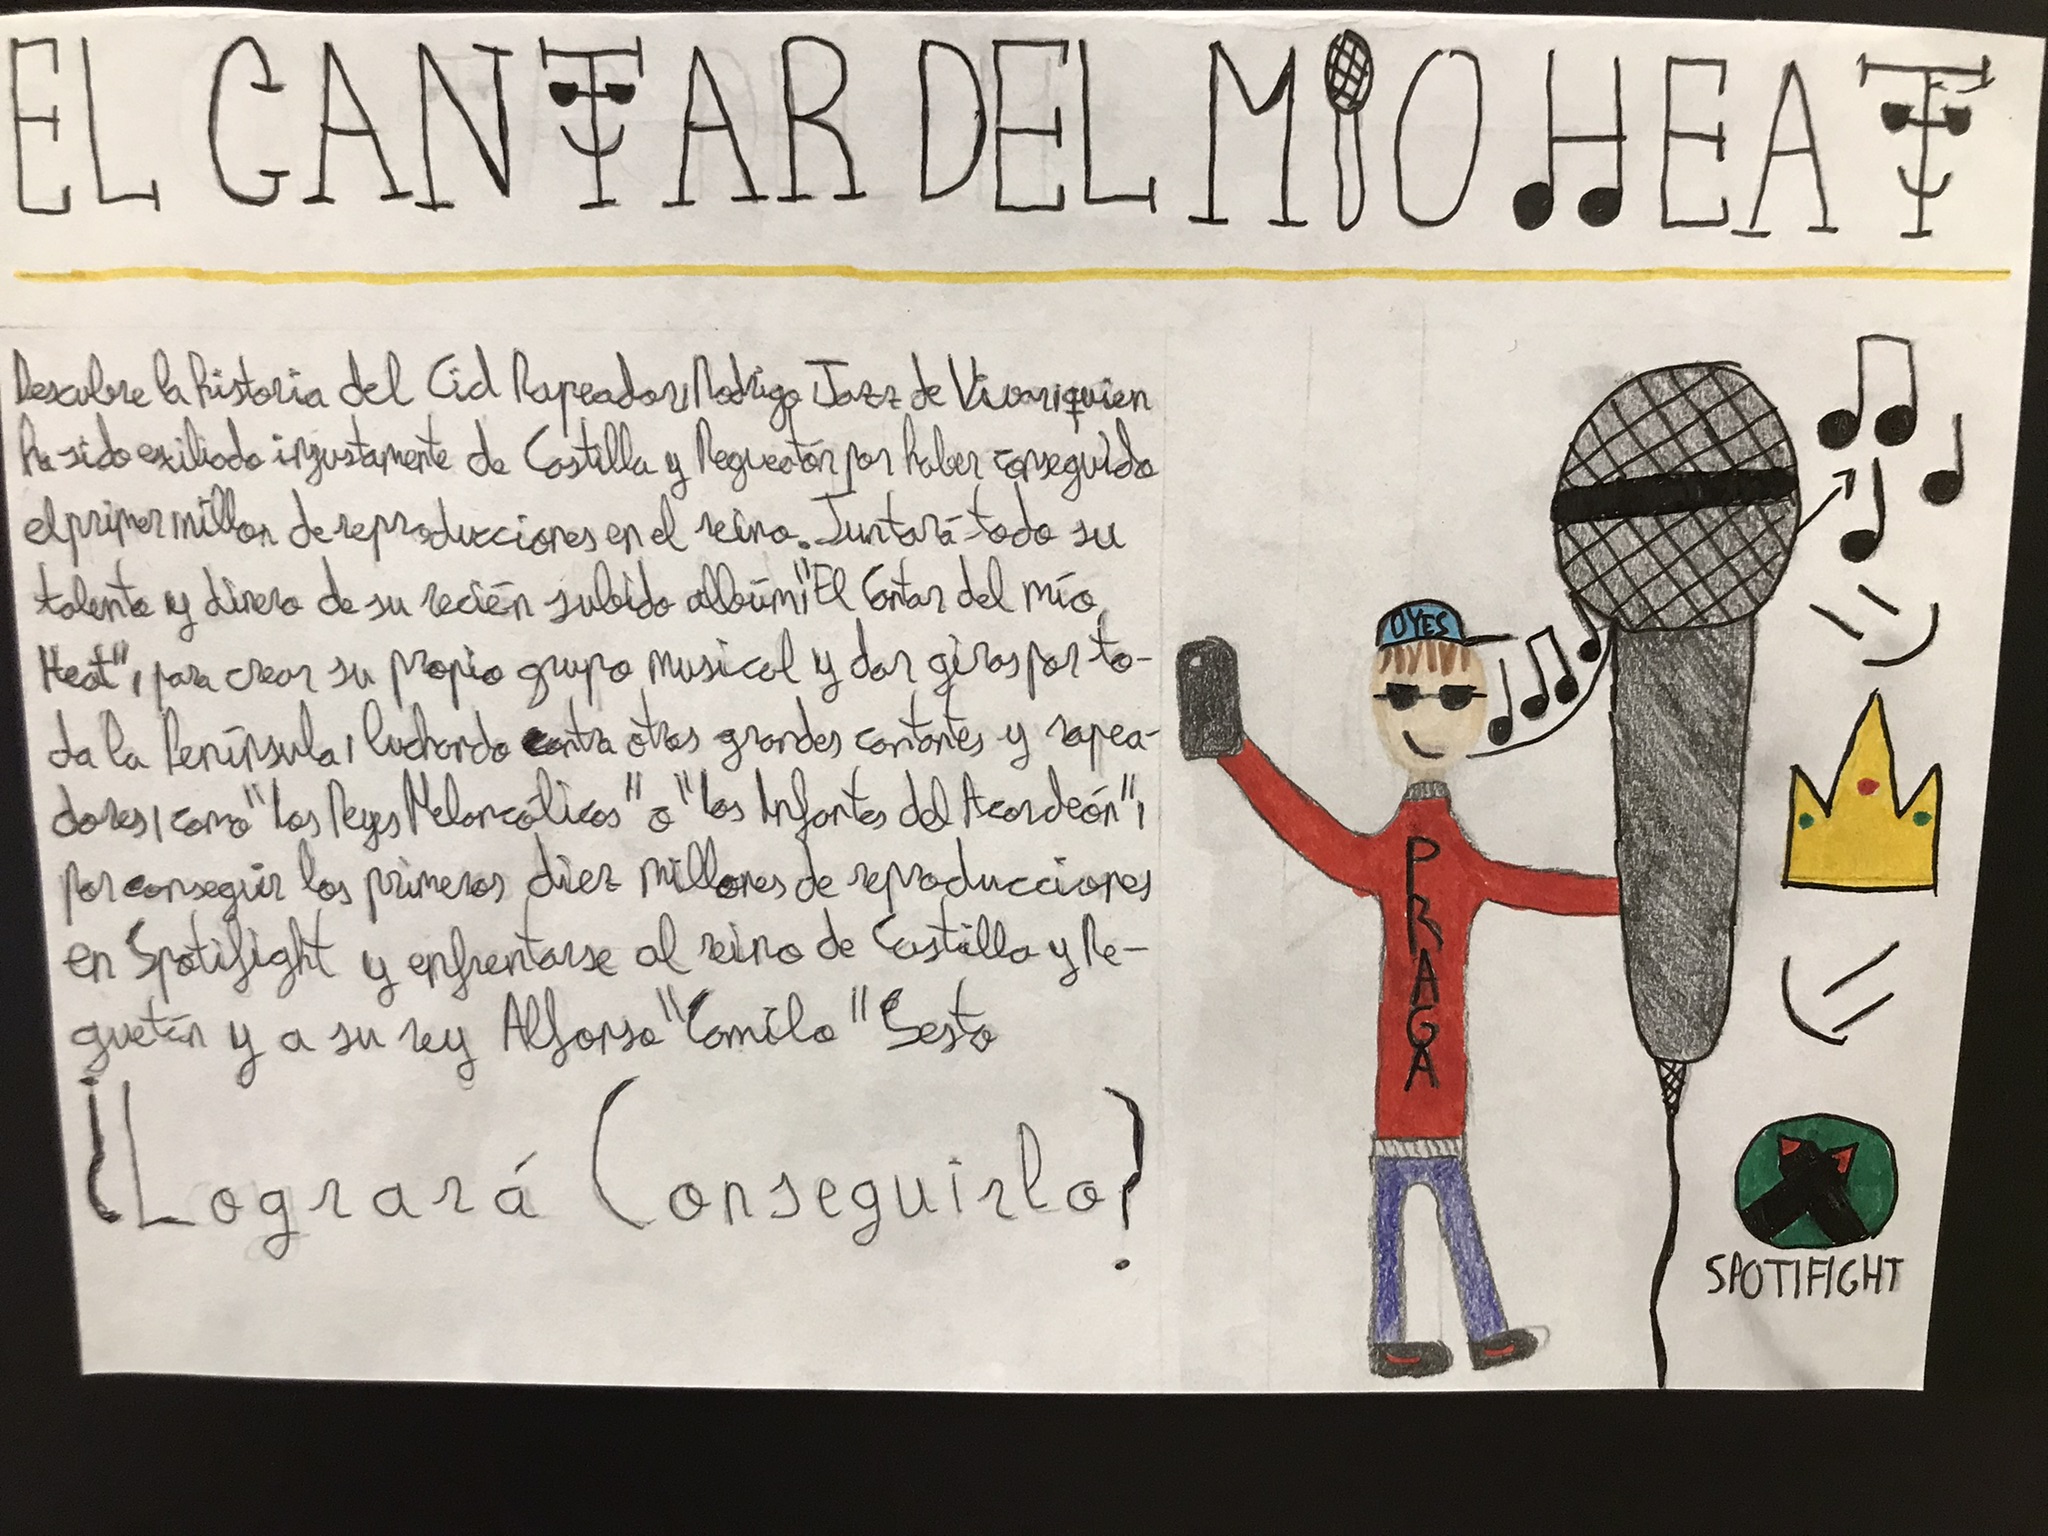 EL CANTAR DEL MIO HEAT
Descubre la historia del Cid Rapeador, Rodrigo Jazz de Vivar, quien
ha sido exiliado injustamente de Castilla y Reguetón por haber conseguido
el primer millon de reproducciones en el reino. Juntará todo su
talento y dinero de su recién subido albúm, "El Cantar del mío
Heat", para crear su propio grupo musical y dar giras por to-
da la Península, luchando contra otros grandes cantantes y rapea-
dores, como "Los Reyes Melancólicos" o "Los Infantes del Acordeón",
por conseguir los primeros diez millones de reproducciones
en Spotifight y enfrentarse al reino de Castilla y Re-
guetón y a su rey Alfonso "Camilo" Sesto
¿Logrará Conseguirlo?
OYES
PRAGA
SPOTIFIGHT